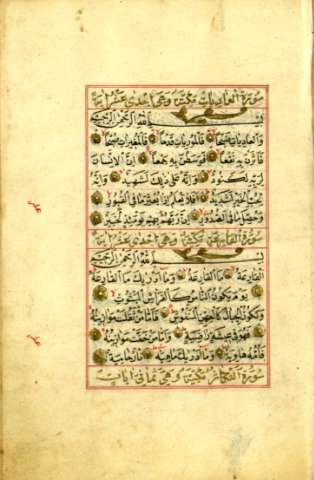 سورة العاديات مكية وهي احدى عشر اية
بسم الله الرحمن الرحيم
والعاديات ضبحا فالموريات قدحا فالمغيرات صبحا
فاثرن به نقعا فوسطن به جمعا ان الانسان
لربه لكنود وانه على ذلك لشهيد وانه
لحب الخير لشديد افلا يعلم اذا بعثر ما في القبور
وحصل ما في الصدور ان ربهم بهم يومئذ لخبير
سورة القارعة مكية وهي احدى عشر اية
بسم الله الرحمن الرحيم
القارعة ما القارعة وما ادريك ما القارعة
يوم يكون الناس كالفراش المبثوث
وتكون الجبال كالعهن المنفوش فاما من ثقلت موازينه
فهو في عيشة راضية واما من خفت موازينه
فامه هاوية وما ادريك ماهيه نار حامية
سورة التكاثر مكية وهي ثماني ايات